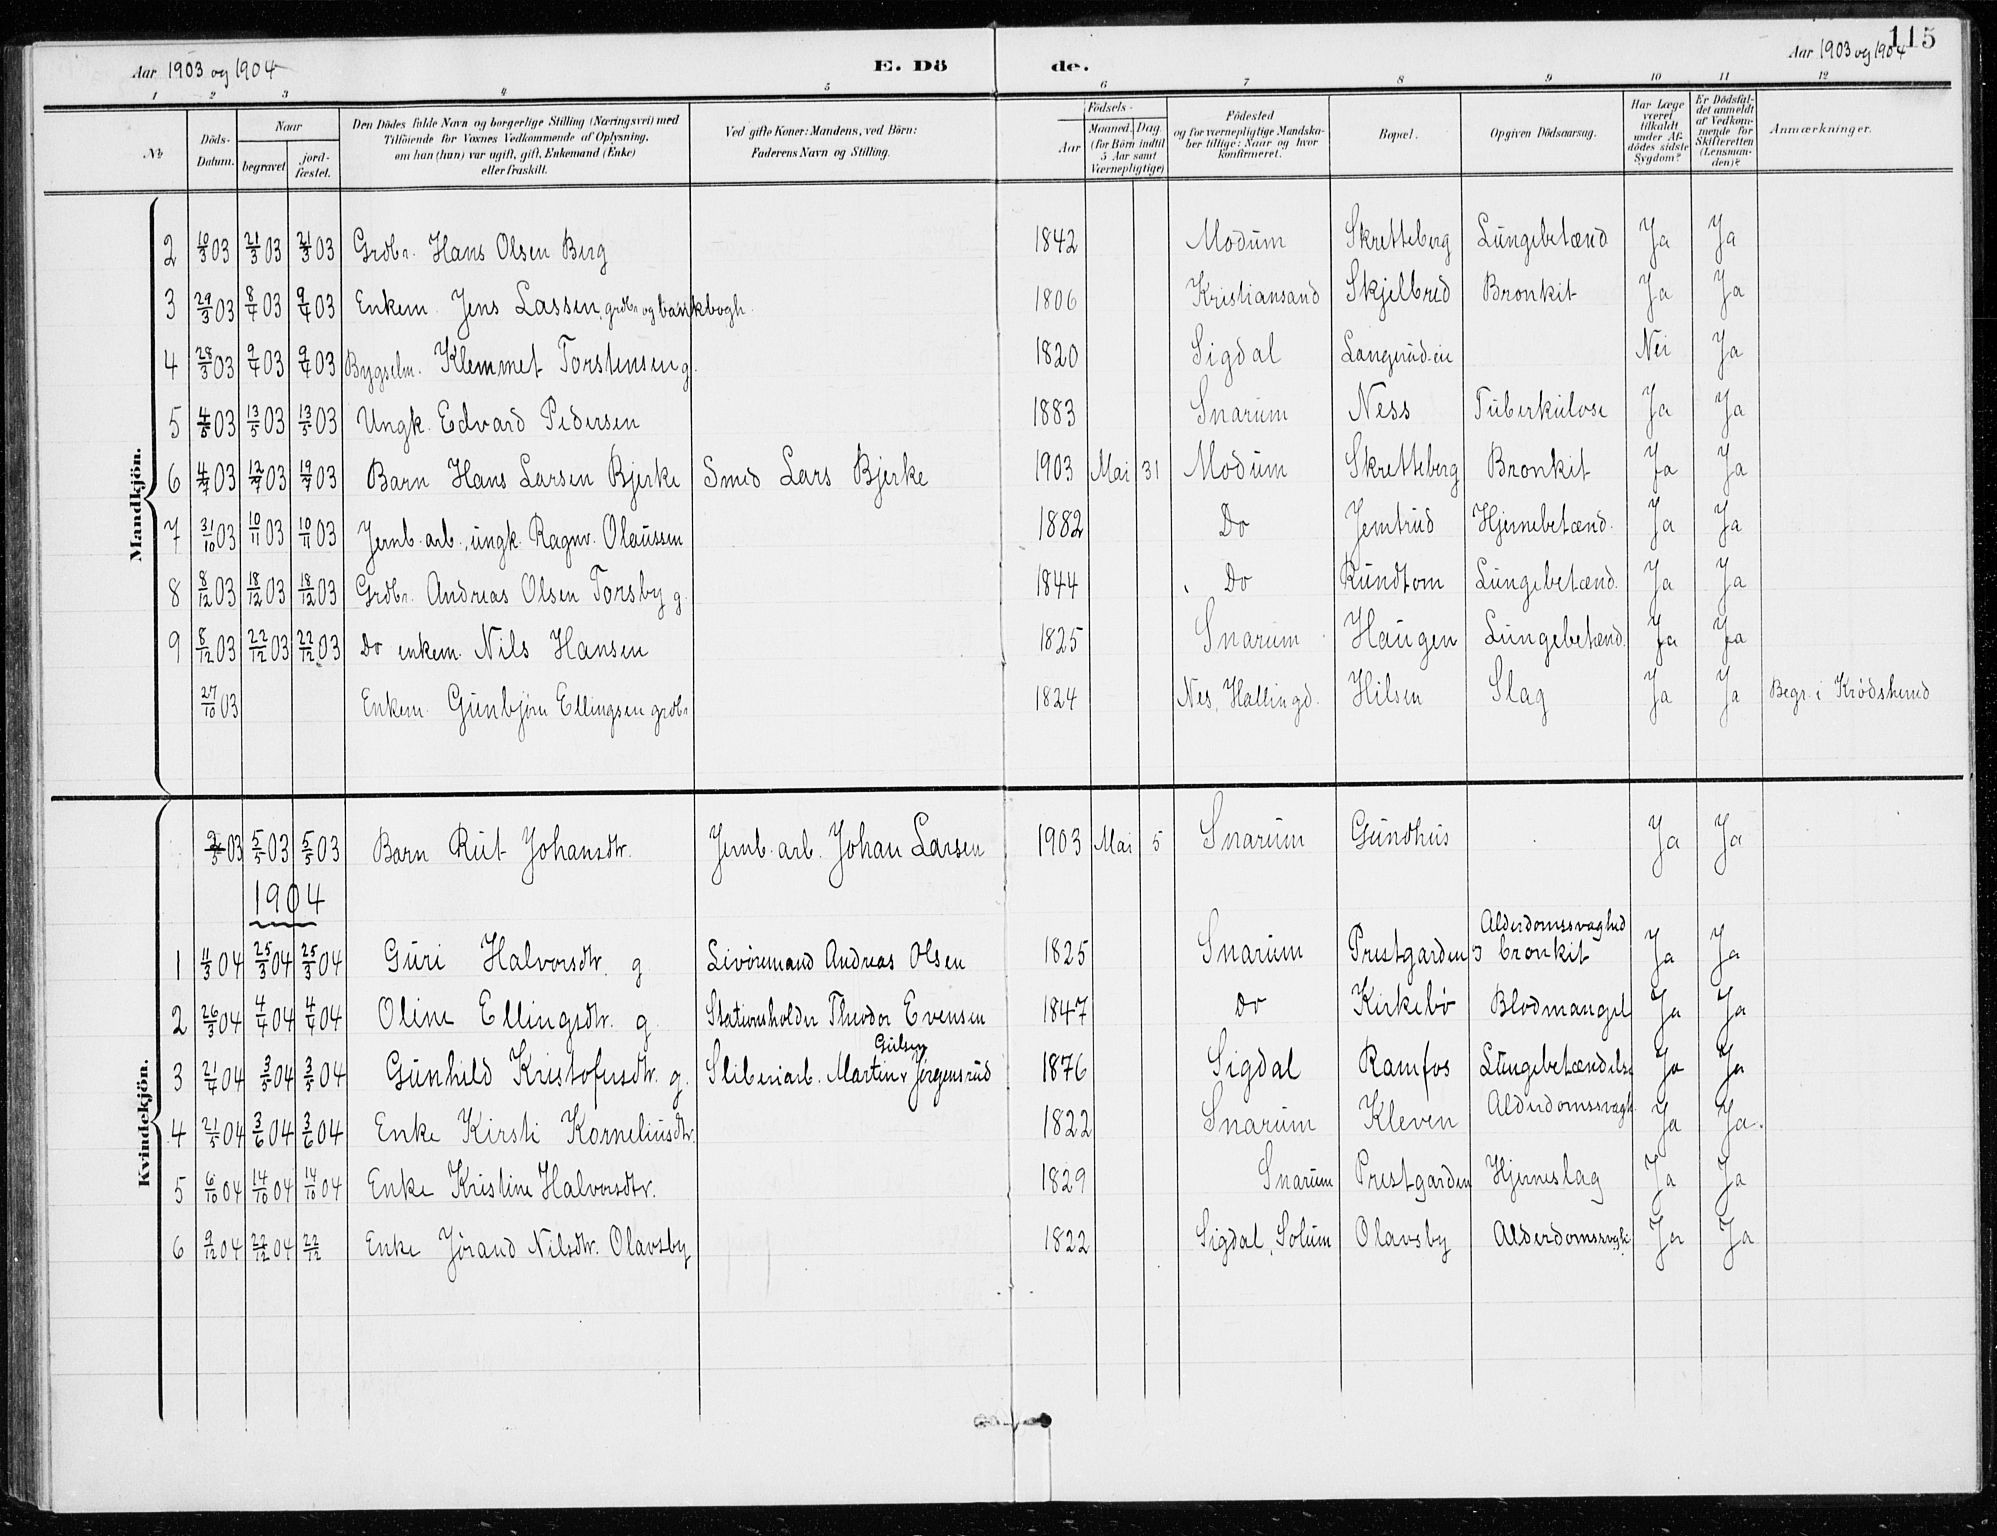 115
Aar 1903 og 1904 E. Dö de. Aar 1903 og 1904
1 2 3 4 5 6 7 8 9 10 11 12
No Döds-Datum. Naar begravet jordfæstet. Den Dödes fulde Navn og borgerlige Stilling (Næringsvei) med Tillöiende for Voxnes Vedkommende af Oplysning, om han (hun) var ugift, gift, Enkemand (Enke) eller fraskilt. Ved gifte Koner: Mandens, ved Börn: Faderens Navn og Stilling. Födsels- Aar Maaned. Dag. (for Börn indtil 5 Aar samt Værnepligtige) Födested og for værnepligtige Mandskaber tillige: Naar og hvor konfirmeret. Bopæl. Opgiven Dödsaarsag. Har Læge været tilkaldt under Afdödes sidste Sygdom? Er Dödsfaldet anmeldt af Vedkommende for Skifteretten (Lensmanden)? Anmærkninger.
Mandkjön.
2 10/3 03 21/3 03 21/3 03 Grdbr. Hans Olsen Berg 1842 Modum Skretteberg Lungebetænd Ja Ja
3 29/3 03 8/4 03 9/4 03 Enkem. Jens Lassen, grdbr og bankbogh. 1806 Kristiansand Skjelbred Bronkit Ja Ja
4 28/3 03 9/4 03 9/4 03 Bygselm. Klemmet Torstensen g. 1820 Sigdal Langerud-eie Nei Ja
5 4/5 03 13/5 03 13/5 03 Ungk. Edvard Pedersen 1883 Snarum Ness Tuberkulose Ja Ja
6 4/7 03 12/7 03 19/7 03 Barn Hans Larsen Bjerke Smed Lars Bjerke 1903 Mai 31 Modum Skretteberg Bronkit Ja Ja
7 31/10 03 10/11 03 10/11 03 Jernb. arb., ungk. Ragnv. Olaussen 1882 Do Jemtrud Hjernebetænd. Ja Ja
8 8/12 03 18/12 03 18/12 03 Grdbr. Andreas Olsen Torsby g. 1844 Do Rundtom Lungebetænd. Ja Ja
9 8/12 03 22/12 03 22/12 03 Do enkem. Nils Hansen 1825 Snarum Haugen Lungebetænd. Ja Ja
27/10 03 Enkem. Gunbjørn Ellingsen grdbr 1824 Nes, Hallingd. Hilsen Slag Ja Ja Begr. i Krødsherred
Kvindekjön.
5/5 03 5/5 03 Barn Rut Johansdtr. Jernb. arb. Johan Larsen 1903 Mai 5 Snarum Gundhus Ja Ja
1904
1 11/3 04 25/3 04 25/3 04 Guri Halvorsdtr. g Livøremand Andreas Olsen 1825 Snarum Prestgarden Alderdomssvaghed & bronkit Ja Ja
2 26/3 04 4/4 04 4/4 04 Oline Ellingsdtr. g Stationsholder Theodor Evensen 1847 Do Kirkebø Blodmangel Ja Ja
3 21/4 04 3/5 04 3/5 04 Gunhild Kristofersdtr. g. Sliberiarb. Martin Gulsen Jørgensrud 1876 Sigdal Ramfos Lungebetændelse Ja Ja
4 21/5 04 3/6 04 3/6 04 Enke Kirsti Korneliusdtr. 1822 Snarum Kleven Alderdomssvagh. Ja Ja.
5 6/10 04 14/10 04 14/10 04 Enke Kristine Halvorsdtr. 1829 Snarum Prestgarden Hjerneslag Ja Ja
6 9/12 04 22/12 04 22/12 Enke Jørand Nilsdtr. Olavsby 1822 Sigdal, Solum Olavsby Alderdomssvagh. Ja Ja